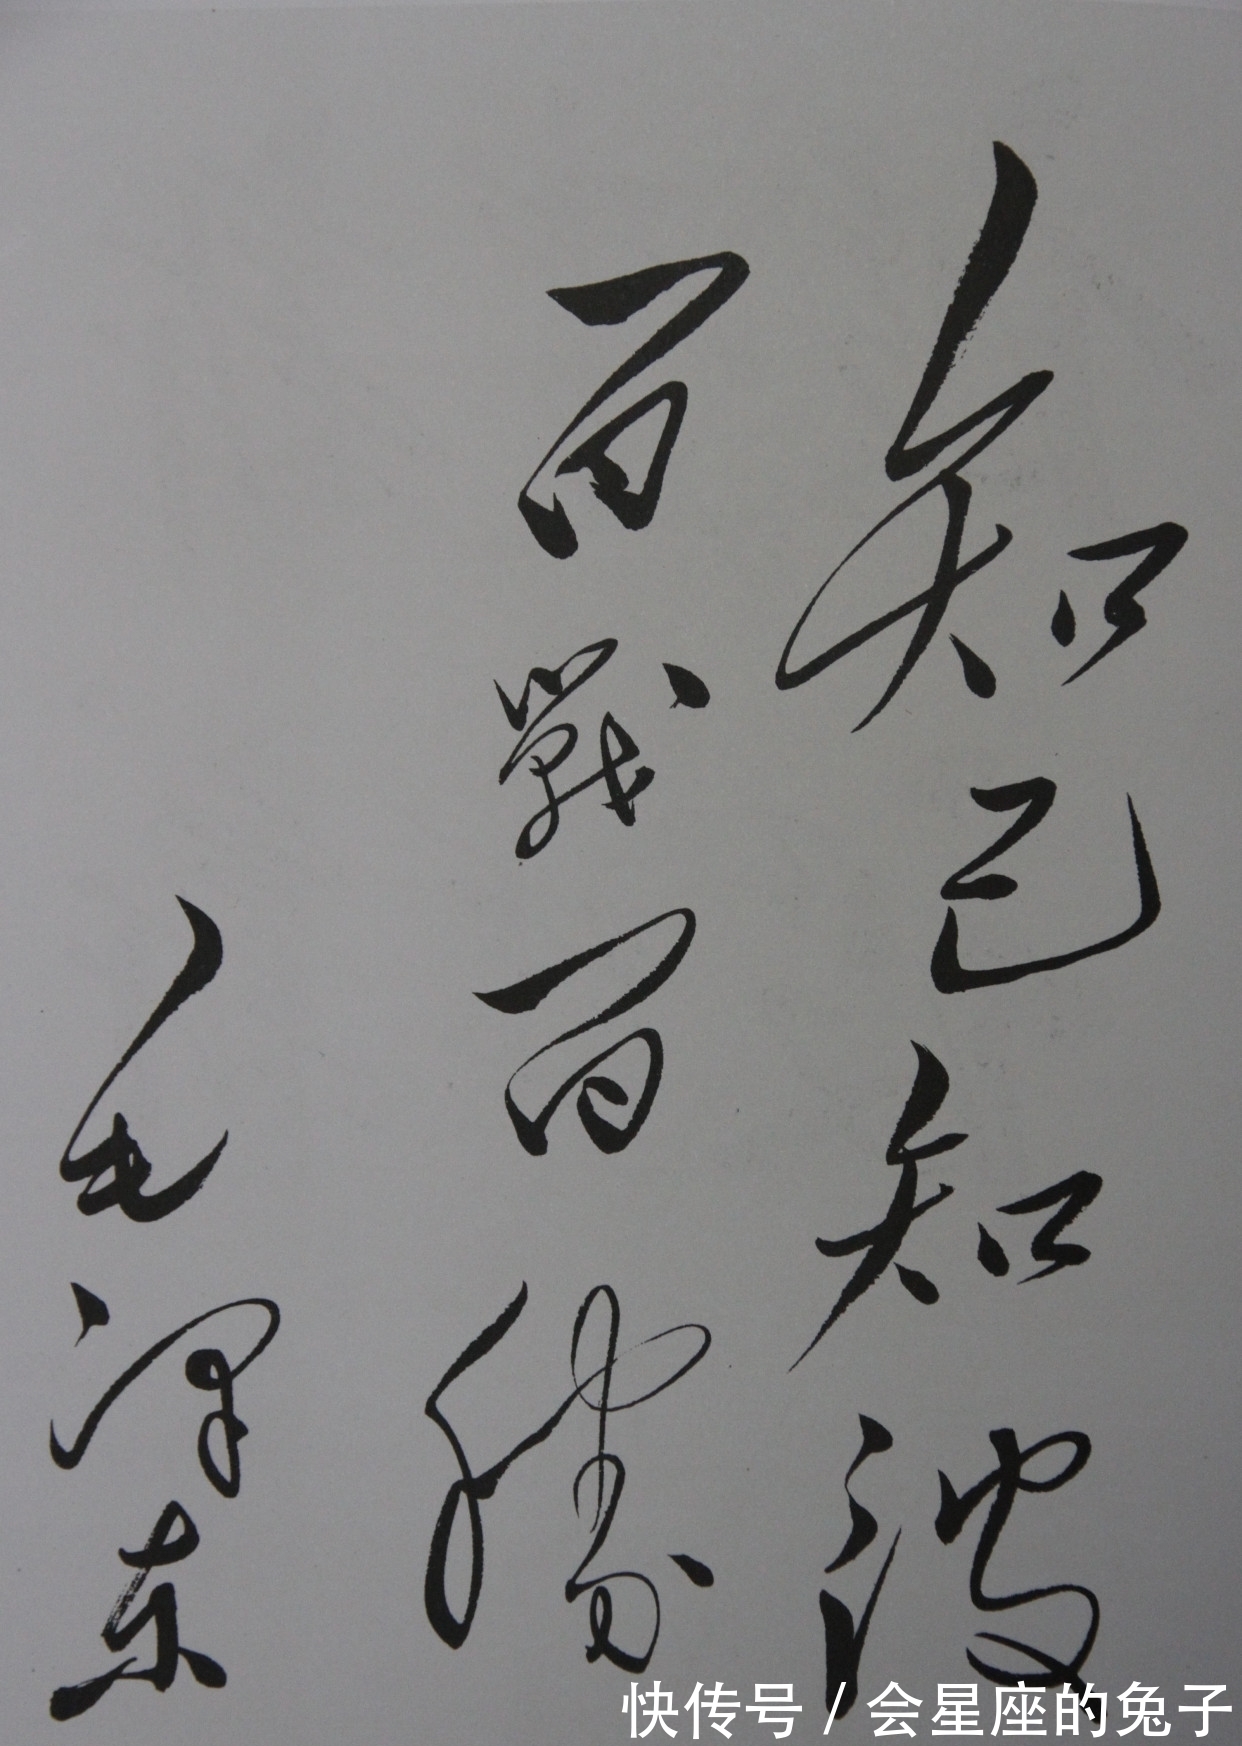 知己知彼
百戰百勝
毛澤东
快传号 / 会星座的兔子